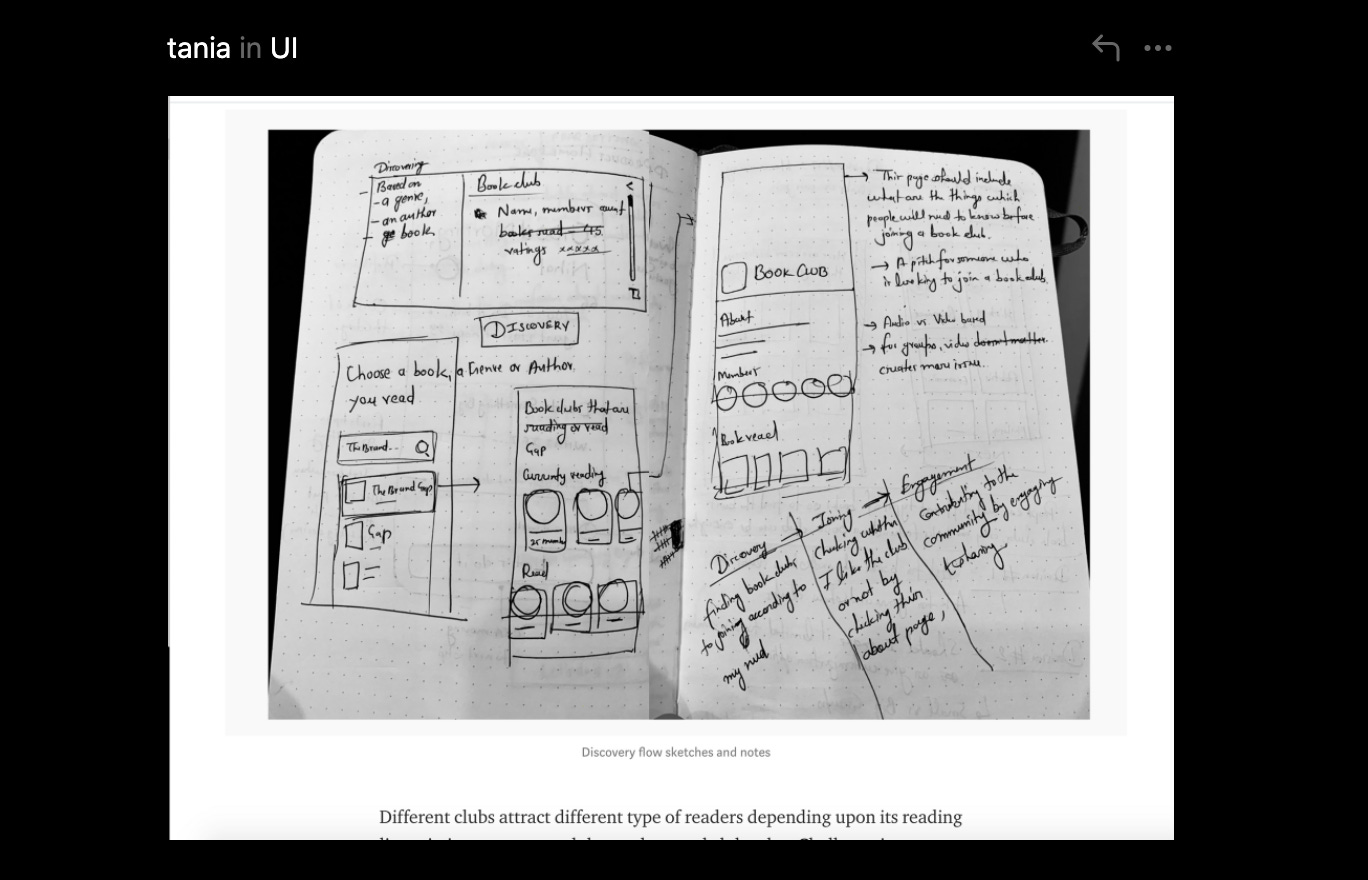 tania in UI
Discovering
Based on
- a genre,
- an author
- book
Book club
Name, members count
books read - 45
ratings xxxxx
DISCOVERY
Choose a book, a Genre or Author.
you read
The Brand...
The Brand Gap
Gap
Book clubs that are
reading or read
Gap
Currently reading
25 members
Read
BOOK CLUB
About
Members
Book read
→ This page should include
what are the things which
people will need to know before
joining a book club.
→ A pitch for someone who
is looking to join a book club.
→ Audio vs Video based
→ for groups, video doesn't matter.
creates more issue.
Discovery
finding book clubs
to joining according to
my need
Joining
checking whether
I like the club
or not by
checking their
about page,
Engagement
Contributing to the
community by engaging
& sharing
Discovery flow sketches and notes
Different clubs attract different type of readers depending upon its reading